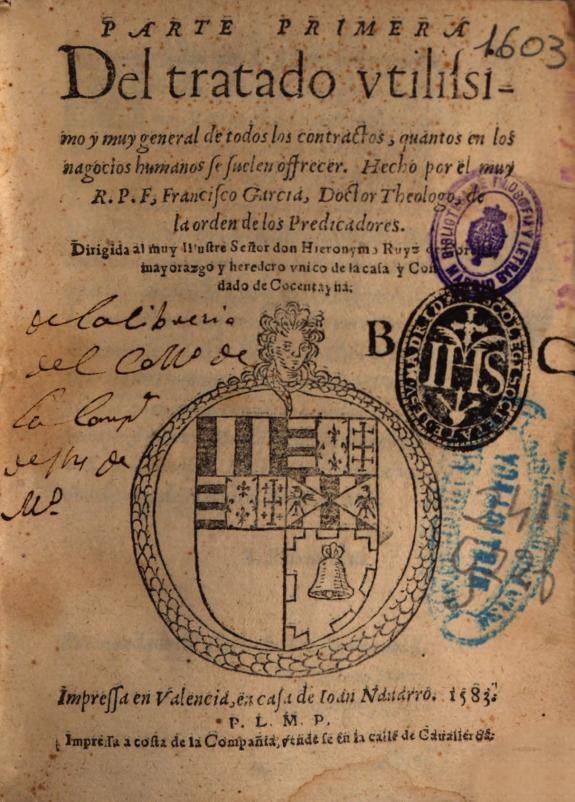 PARTE PRIMERA
1603
Del tratado vtiliſsi-
mo y muy general de todos los contractos, quantos en los
nagocios humanos ſe ſuelen offrecer. Hecho por el muy
R. P. F. Franciſco Garcia, Doctor Theologo, de
la orden de los Predicadores.
Dirigida al muy Iluſtre Señor don Hieronymo Ruyz de
mayorazgo y heredero vnico de la caſa y Con
dado de Cocentayna.
BIBLIOTECA DE FILOSOFIA Y LETRAS
MADRID
B
IHS
de la libreria
del Collº de
la Compª
de Jhs de
Mº
BIBLIOTECA
Impreſſa en Valencia, en caſa de Ioan Nauarro. 1583.
P. L. M. P.
Impreſſa a coſta de la Compañia, vende ſe en la calle de Caualleros.